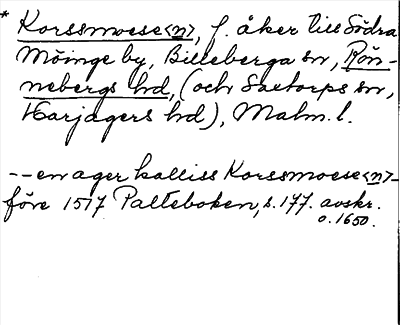 * Korssmoese<n>, f. åker till Södra
Möinge by, Billeberga sn, Rön-
nebergs hd, (och Saxtorps sn,
Harjagers hd), Malm. l.
--en ager kalliss Korssmoese<n>-
före 1517 Palteboken, s. 177. avskr.
o. 1650.